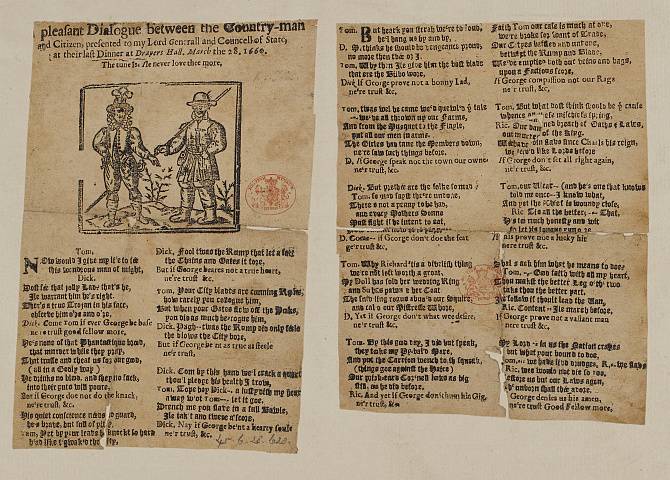 pleasant Dialogue between the Country-man
and Citizen, presented to my Lord Generall and Councell of State,
at their last Dinner at Drapers Hall, March the 28. 1660.
The tune Ile never love thee more,
Tom,
NOw would I give my life to see
this wondrous man of might,
Dick.
Dost see that jolly Lad that's he,
Ile warrant him he's right.
There's a true Trojan in his face,
observe him o're and o're,
Dick. Come Tom if ever George be base
ne're trust good fellow more,
He's none of that Phantastique brood,
that murder while they pray,
That trusse and cheat us for our good,
(all in a Godly way)
He drinks no blood, and they no sack,
into their guts will poure,
But if George doe not do the knack,
ne're trust, &c.
His quiet conscience needs no guard,
he's brave, but full of pity,
Tom, Yet by your leave h' knockt so hard
h'ad like t' awake the City.
Dick, Fool twas the Rump that let a fart
the Chains and Gates it tore,
But if George beares not a true heart,
ne're trust, &c.
Tom, Your City blades are cunning Rogues,
how rarely you cologue him,
But when your Gates flew off the
you did as much become him,
Dick, Pugh-twas the Rump did only fizle
the blows the City bore,
But if George be'nt as true as steele
ne're trust, &c.
Dick, Com by this hand we'l crack a quart
thou'l pledge his health I trow,
Tom, Tope boy Dick- a lusty dish my heart
away w'ot Tom-- let it goe.
Drench me you slave in a full Bowle,
Ile tak't and twere a score,
Dick, Nay if George be'nt a hearty soule
ne're trust, &c.
Tom. But heark you sirrah we're to loud,
he'l hang us by and by,
D. M. thinks he should be vengeance proud,
no more then thee or I.
Tom, Why then Ile give him the best blade
that ere the Bilbo wore,
Dick If George prove not a bonny Lad,
ne're trust &c.
Tom, twas wel he came we'd
we're all thrown up our Farms,
And from the Musquet to the Flagle,
put all our men in arms.
The Girles had tane the Members down,
ne're saw such things before.
D. If George speak not the town our owne
ne're trust, &c.
Dick. But prethee are the folke so mad
Tom. so mad sayst the're undone,
There's not a penny to be had,
and every Mothers Sonne
Must fight if he intent to eat,
D. Come-- if George don't doe the feat
ne're trust &c.
Tom. Why Richard 'tis a divilish thing
we're not left worth a groat,
My Doll has sold her wedding Ring
and Sukes pawn'd her Coat
The sniveling rogues abus'd our Squire,
and cal'd our Mistresse Whore,
D. Yet if George don't what wee desire,
ne're trust, &c.
Tom. By this good day, I did but speak,
they take my Py-bald Mare,
And put the Carrion wench to th squeak,
(things goe against the Haire)
Our prick-eard Coronell looks as big
still, as he did before,
Ric. And yet if George don't hum his Gig,
ne're trust, &c.
Faith Tom our case is much at one,
we're broke for want of Trade,
Our City's baffled and undone,
betwixt the Rump and Blade.
We've emptied both our veins and bags,
upon a Factious score,
If George compassion not our Rags
ne'r trust &c.
Tom. But what dost think should be cause
whence all these mischiefs spring,
Ric. Our damned breach of Oathes & Laws,
our murther of the King.
We have bin slaves since Charls his reign,
we liv'd like Lords before
If George don't set all right again,
ne'r trust, &c.
Tom. our Vicar-- (and he's one that knowes)
told me once--I know what,
And yet the theef is woundy close,
Ric. Tis all the better,-- That,
H'as too much honesty and wit
to let his tongue runne o're
If this prove not a lucky hit
nere trust &c.
Shal's ask him what he means to doe?
Tom, -- God faith with all my heart,
Thou mak'st the better Leg o' th' two
take thou the better part.
Ile follow if thou'l lead the Van,
Ric. Content- Ile march before,
If George prove not a valiant man
nere trust &c.
My Lord - in us the Nation craves
but what your bound to doe,
Tom.-- we have liv'd drudges, R.-- we slaves
Ric. wee would not die so too,
Restore us but our Laws agen,
th' unborn shall thee adore,
If George denies us his amen,
ne're trust Good Fellow more,